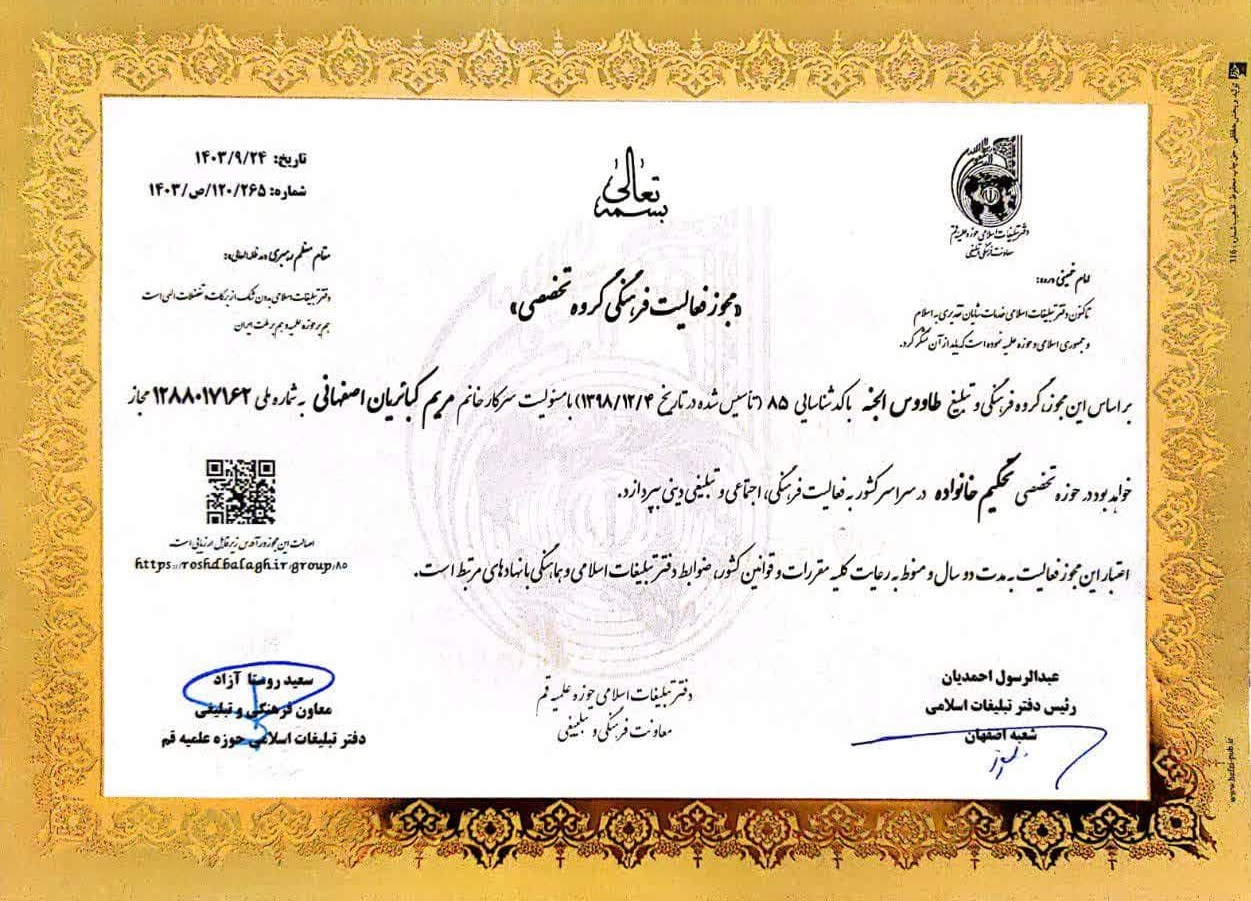 بسمه تعالی
تاریخ: ۱۴۰۳/۹/۲۴
شماره: ۱۲۰/۲۶۵/ص/۱۴۰۳
دفتر تبلیغات اسلامی حوزه علمیه قم
معاونت فرهنگی تبلیغی
امام خمینی (ره):
تاکنون دفتر تبلیغات اسلامی خدمات شایان تقدیری به اسلام
و جمهوری اسلامی و حوزه علمیه نموده است که باید از آن تشکر کرد.
مقام معظم رهبری (مدظله العالی):
دفتر تبلیغات اسلامی بدون شک از برکات و تفضلات الهی است
هم بر حوزه علمیه و هم بر ملت ایران
«مجوز فعالیت فرهنگی گروه تخصصی»
بر اساس این مجوز، گروه فرهنگی و تبلیغ طاووس الجنه با کد شناسایی ۸۵ (تأسیس شده در تاریخ ۱۳۹۸/۱۲/۴) با مسئولیت سرکار خانم مریم کبائریان اصفهانی به شماره ملی ۱۲۸۸۰۱۷۱۶۲ مجاز
خواهد بود در حوزه تخصصی تحکیم خانواده در سراسر کشور به فعالیت فرهنگی، اجتماعی و تبلیغی دینی بپردازد.
اعتبار این مجوز فعالیت به مدت دو سال و منوط به رعایت کلیه مقررات و قوانین کشور، ضوابط دفتر تبلیغات اسلامی و هماهنگی با نهادهای مرتبط است.
اصالت این مجوز در آدرس زیر قابل ارزیابی است
https://roshd.balagh.ir/group/۸۵
عبدالرسول احمدیان
رئیس دفتر تبلیغات اسلامی
شعبه اصفهان
دفتر تبلیغات اسلامی حوزه علمیه قم
معاونت فرهنگی و تبلیغی
سعید روستا آزاد
معاون فرهنگی و تبلیغی
دفتر تبلیغات اسلامی حوزه علمیه قم
www.hafez-pub.ir